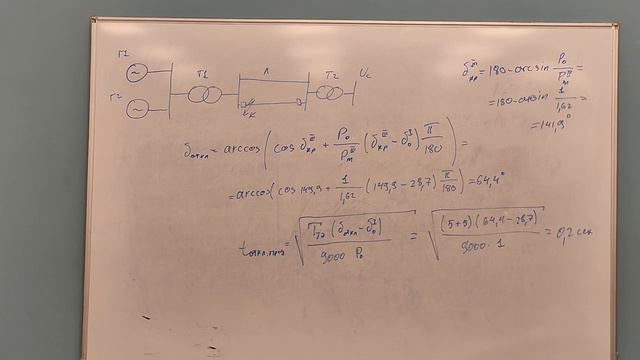 Г1
Г2
Т1
Л
Т2
Uc
K
δкр^III = 180 - arcsin P₀/Pm^III =
= 180 - arcsin 1/1,62 =
= 141,9°
δоткл = arccos( cos δкр^III + P₀/Pm^III (δкр^III - δ₀^I) π/180 ) =
= arccos( cos 149,9 + 1/1,62 (149,9 - 28,7) π/180 ) = 64,4°
tоткл.пред = √( TJΣ (δоткл - δ₀^I) / 9000 P₀ ) = √( (5+5)(64,4 - 28,7) / 9000 · 1 ) = 0,2 сек